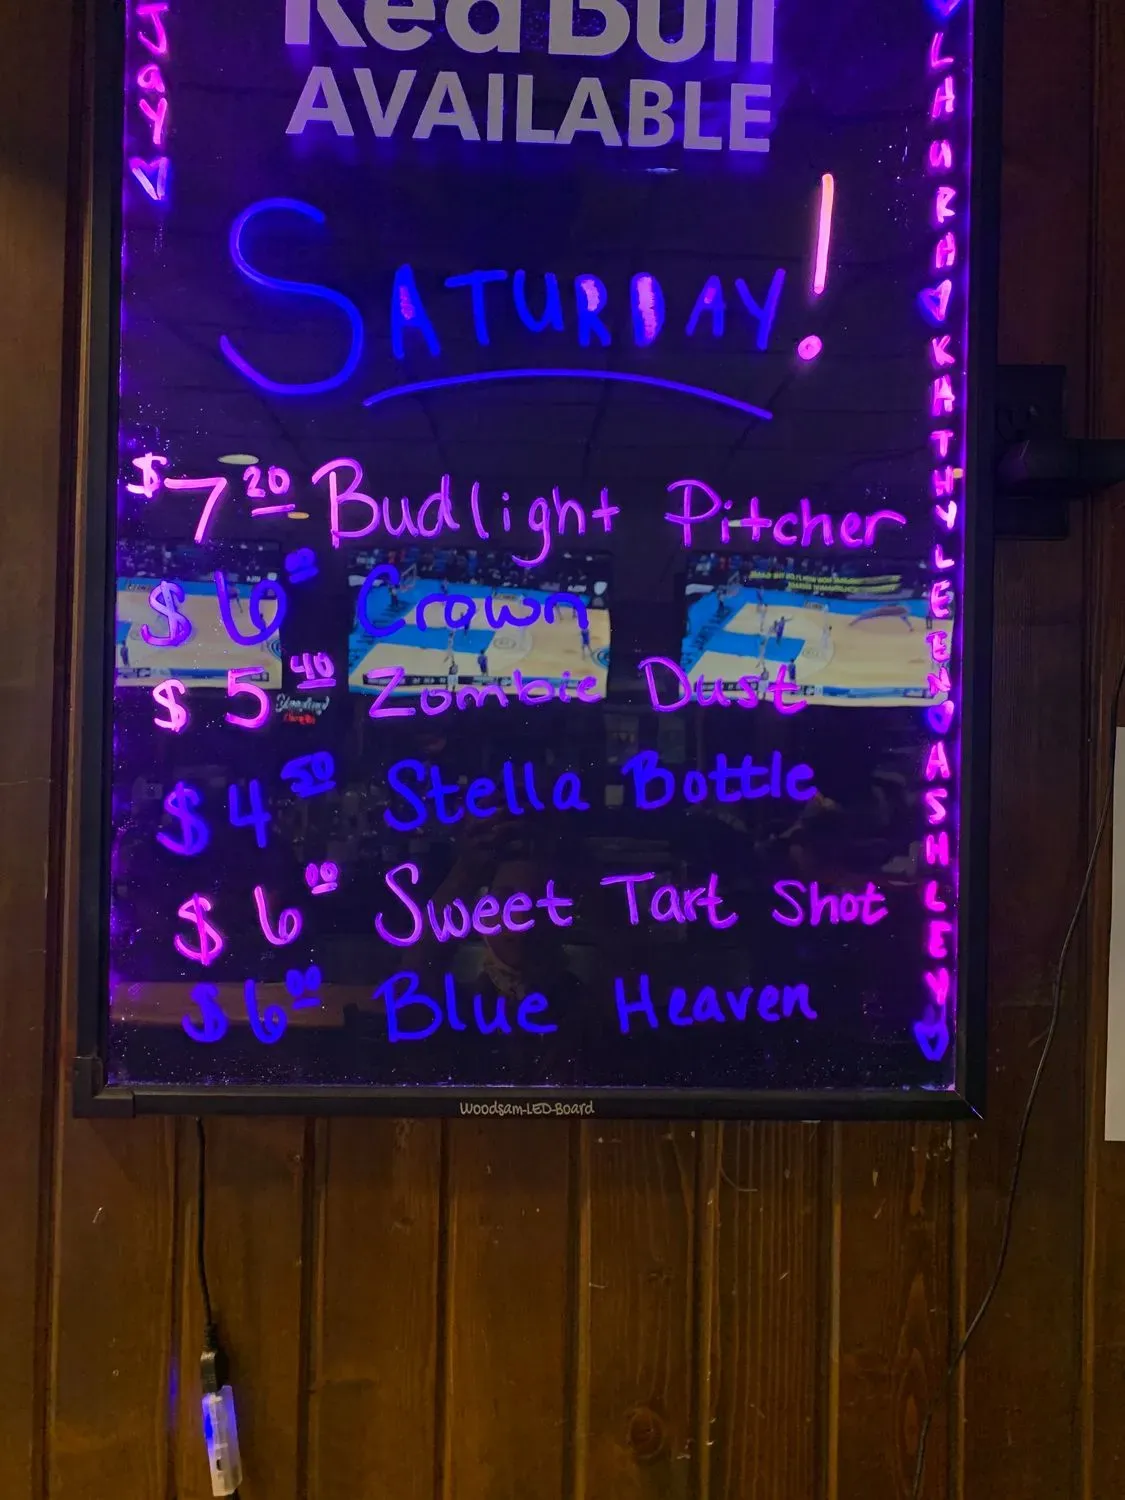 Red Bull
AVAILABLE
SATURDAY!
$7 20 Budlight Pitcher
$6 Crown
$5 40 Zombie Dust
$4 50 Stella Bottle
$6 00 Sweet Tart Shot
$6 00 Blue Heaven
Jay
LAURA
KATHYLEEN
ASHLEY
Woodsam-LED-Board